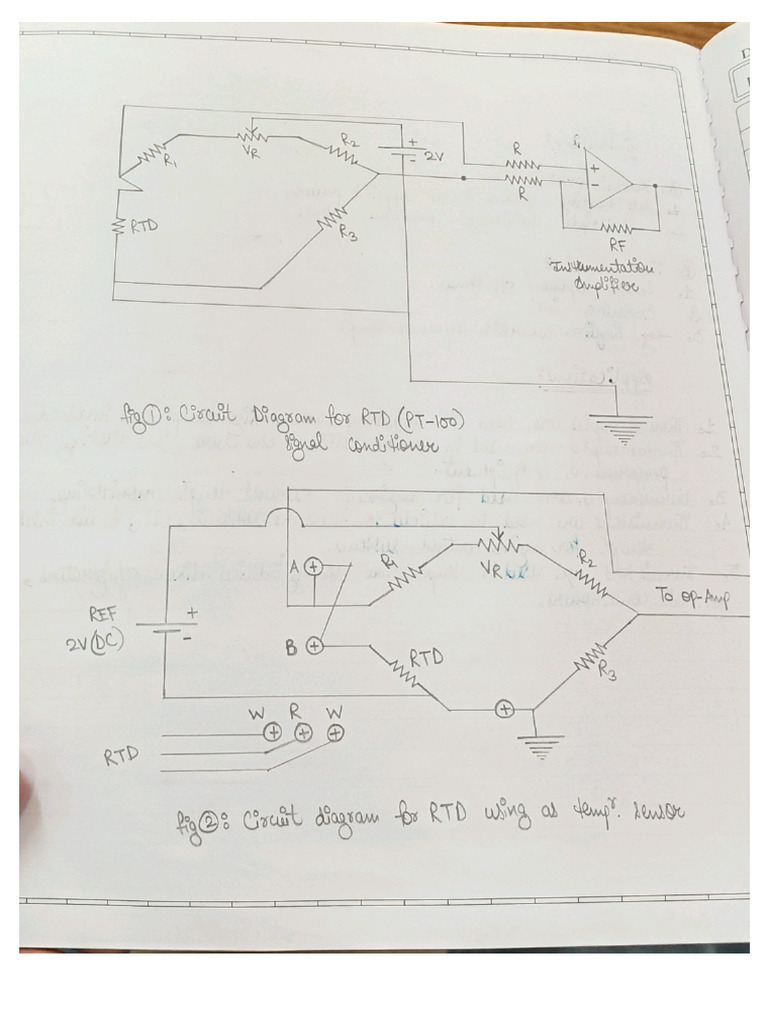 R1
VR
R2
+
-
2V
R
R
+
-
RTD
R3
RF
Instrumentation
Amplifier
fig ①: Circuit Diagram for RTD (PT-100)
signal conditioner
A
R1
VR
R2
To op-Amp
REF
2V(DC)
+
-
B
RTD
R3
W R W
RTD
fig ②: Circuit diagram for RTD using as tempr. sensor